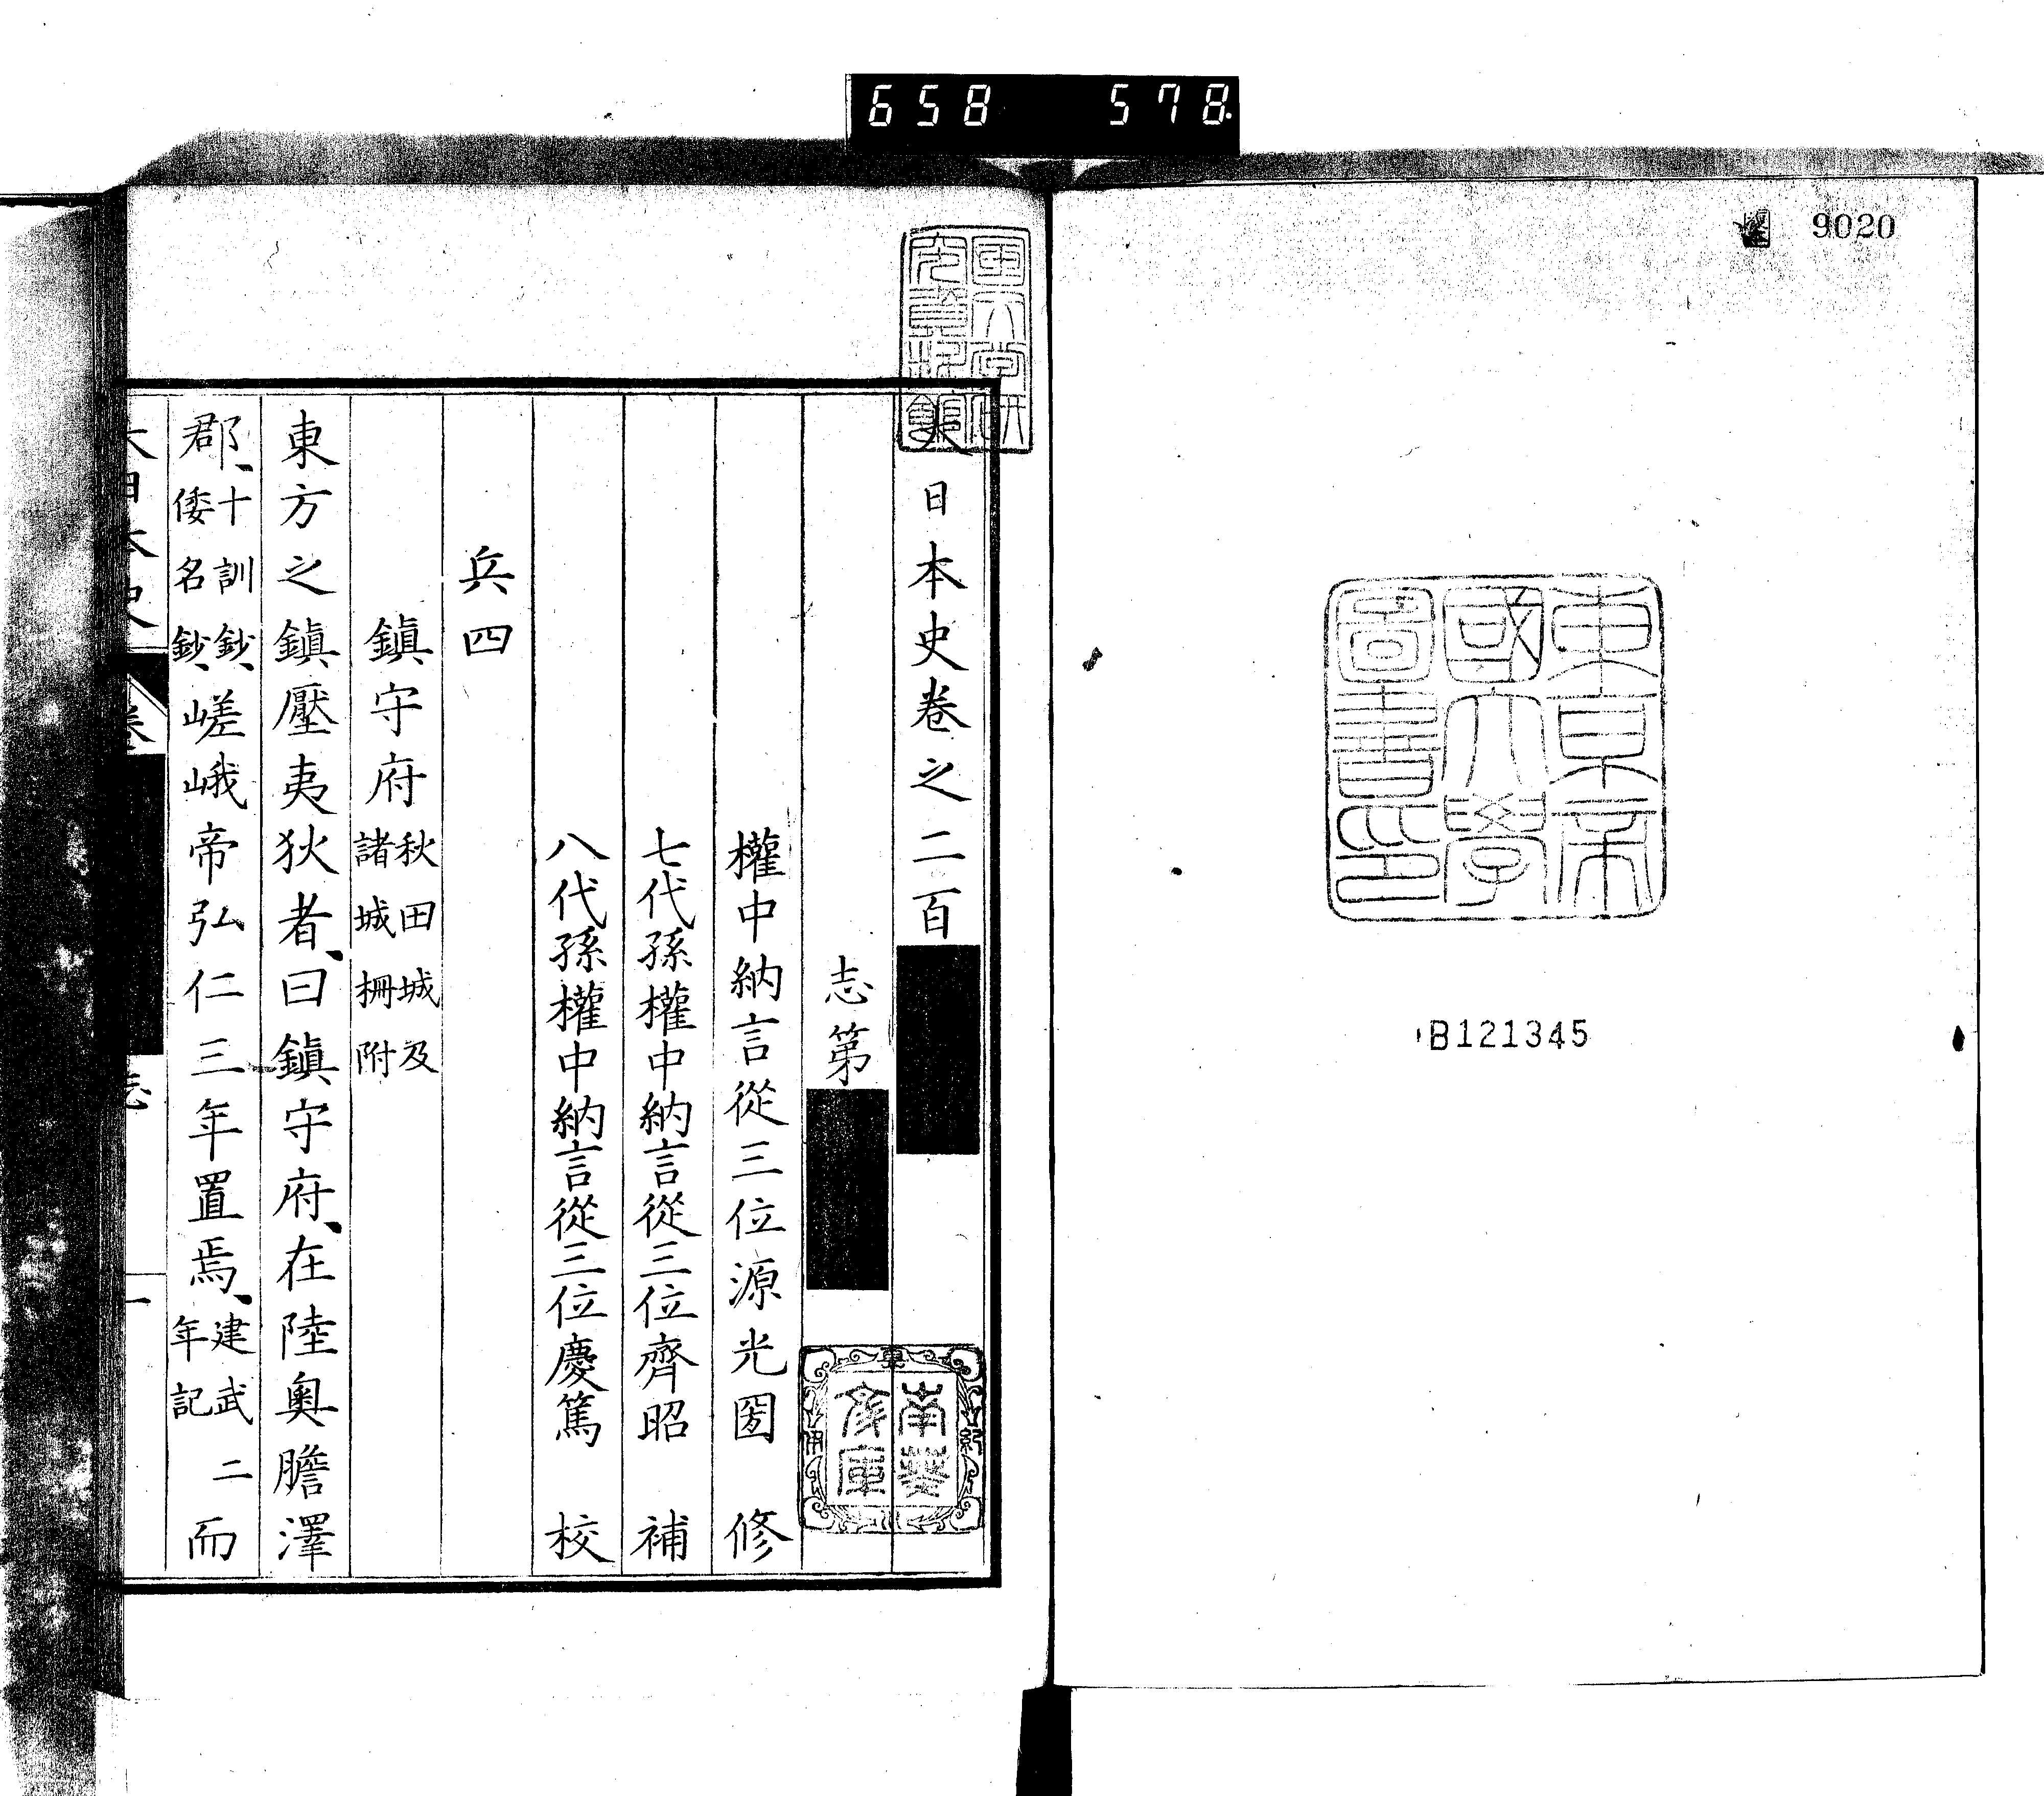 658 578
9020
東京帝
國大學
圖書印
B121345
大日本史卷之二百
志第
權中納言從三位源光圀 修
七代孫權中納言從三位齊昭 補
八代孫權中納言從三位慶篤 校
兵四
鎮守府 秋田城及
諸城柵附
東方之鎮壓夷狄者、曰鎮守府、在陸奥膽澤
郡、十訓鈔、
倭名鈔、
嵯峨帝弘仁三年置焉、建武二
年記
而
大日本史 卷 志 一
南葵
文庫